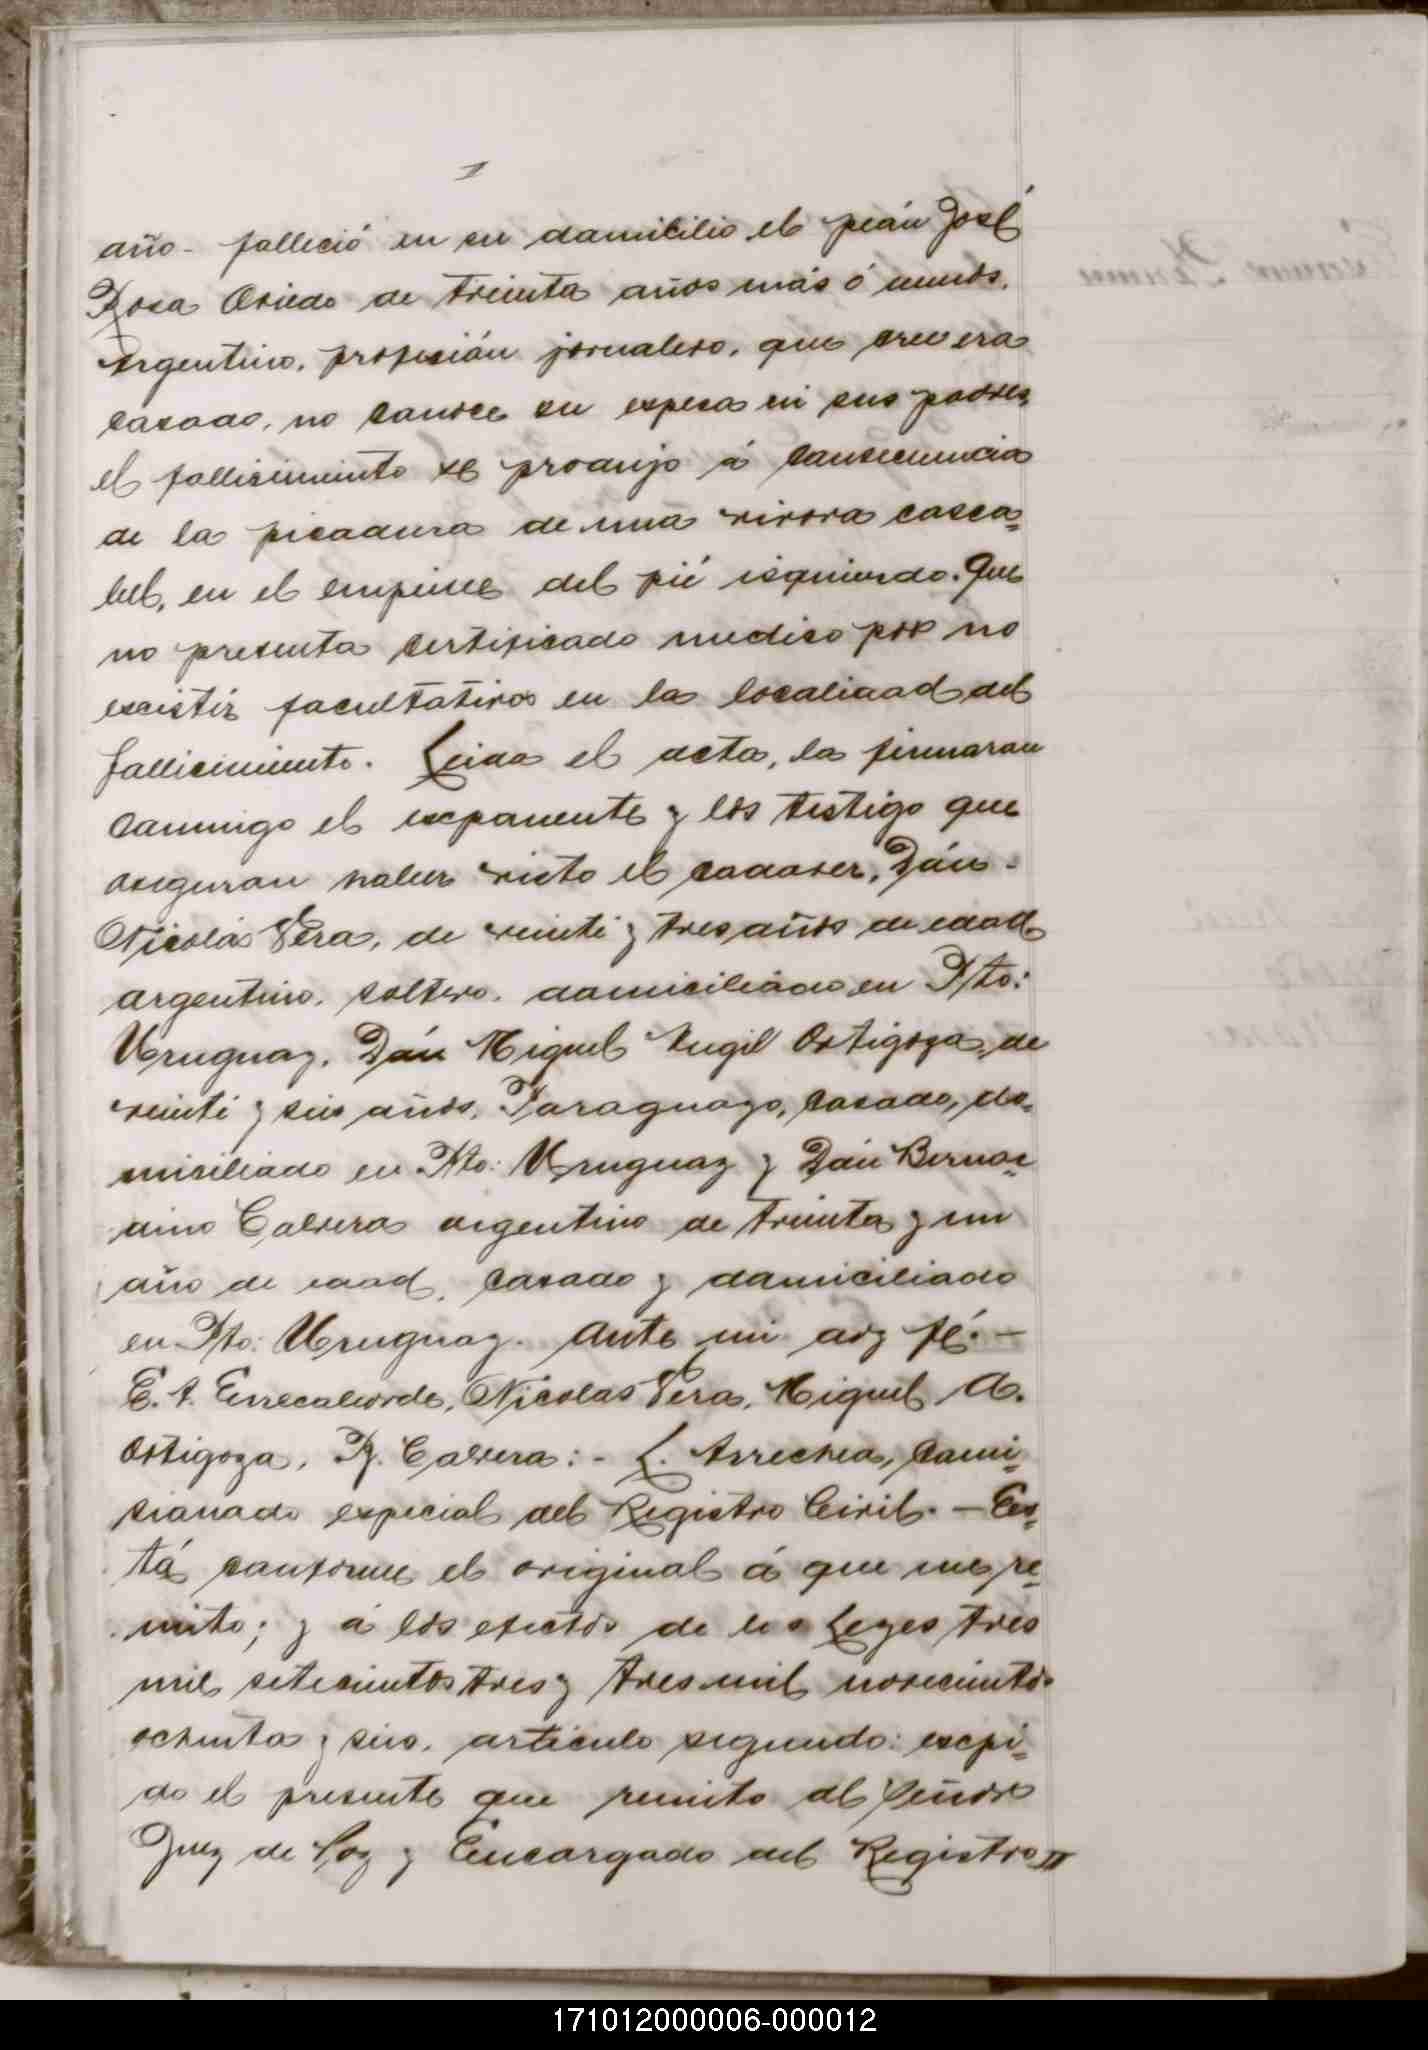 año - falleció en su domicilio el peón José
Rosa Oviedo de treinta años más ó menos,
Argentino, profesión jornalero, que cree era
casado, no conoce su esposa ni sus padres,
el fallecimiento se produjo á consecuencia
de la picadura de una vivora casca=
bel, en el empeine del pié isquierdo. Que
no presenta certificado medico por no
existir facultativos en la localidad del
fallecimiento. Leida el acta, la firmaron
conmigo el exponente y los testigo que
aseguran haber visto el cadaver, Dón -
Nicolás Vera, de veinti y tres años de edad
argentino, soltero, domiciliado en Pto:
Uruguay, Dón Miguel Angil Ortigoza, de
veinti y seis años, Paraguayo, casado, do=
misiliado en Pto: Uruguay y Dón Bernar=
dino Cabrera argentino de treinta y un
año de edad, casado y domiciliado
en Pto: Uruguay. Ante mi doy fé. -
E. A. Errecaborde, Nicolas Vera, Miguel A.
Ortigoza, B. Cabrera: - L. Arrechea, Comi=
sionado especial del Registro Civil. - Es=
tá conforme el original á que me re=
mito; y á los efectos de las Leyes tres
mil setecientos tres y tres mil novecientos
ochenta y seis, articulo segundo: expi=
do el presente que remito al Señor
Juez de Paz y Encargado del Registro
171012000006-000012